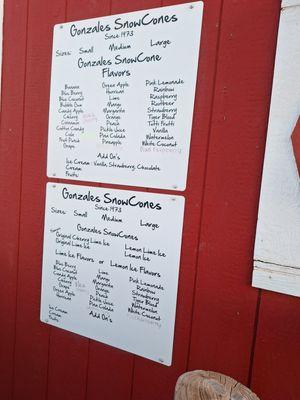 Gonzales SnowCones
Since 1973
Sizes: Small Medium Large
Gonzales SnowCone
Flavors
Banana
Blue Berry
Blue Coconut
Bubble Gum
Candy Apple
Cherry
Cinnamon
Cotton Candy
Coke
Fruit Punch
Grape
Green Apple
Hurrican
Lime
Mango
Margarita
Orange
Peach
Pickle Juice
Pina Colada
Pineapple
Pink Lemonade
Rainbow
Raspberry
Rootbeer
Strawberry
Tiger Blood
Tutti Frutti
Vanilla
Watermelon
White Coconut
Add On's
Ice Cream: Vanilla, Strawberry, Chocolate
Cream
Fruits:
Gonzales SnowCones
Since 1973
Sizes: Small Medium Large
Gonzales SnowCones
Original Cherry Lime Ice
Original Lime Ice
Lemon Lime Ice
Lemon Ice
Lime Ice Flavors or Lemon Ice Flavors
Blue Berry
Blue Coconut
Candy Apple
Cherry
Grape
Green Apple
Hurrican
Lime
Mango
Margarita
Orange
Peach
Pickle Juice
Pina Colada
Pink Lemonade
Rainbow
Strawberry
Tiger Blood
Watermelon
White Coconut
Add On's
Ice Cream
Cream
Fruits: